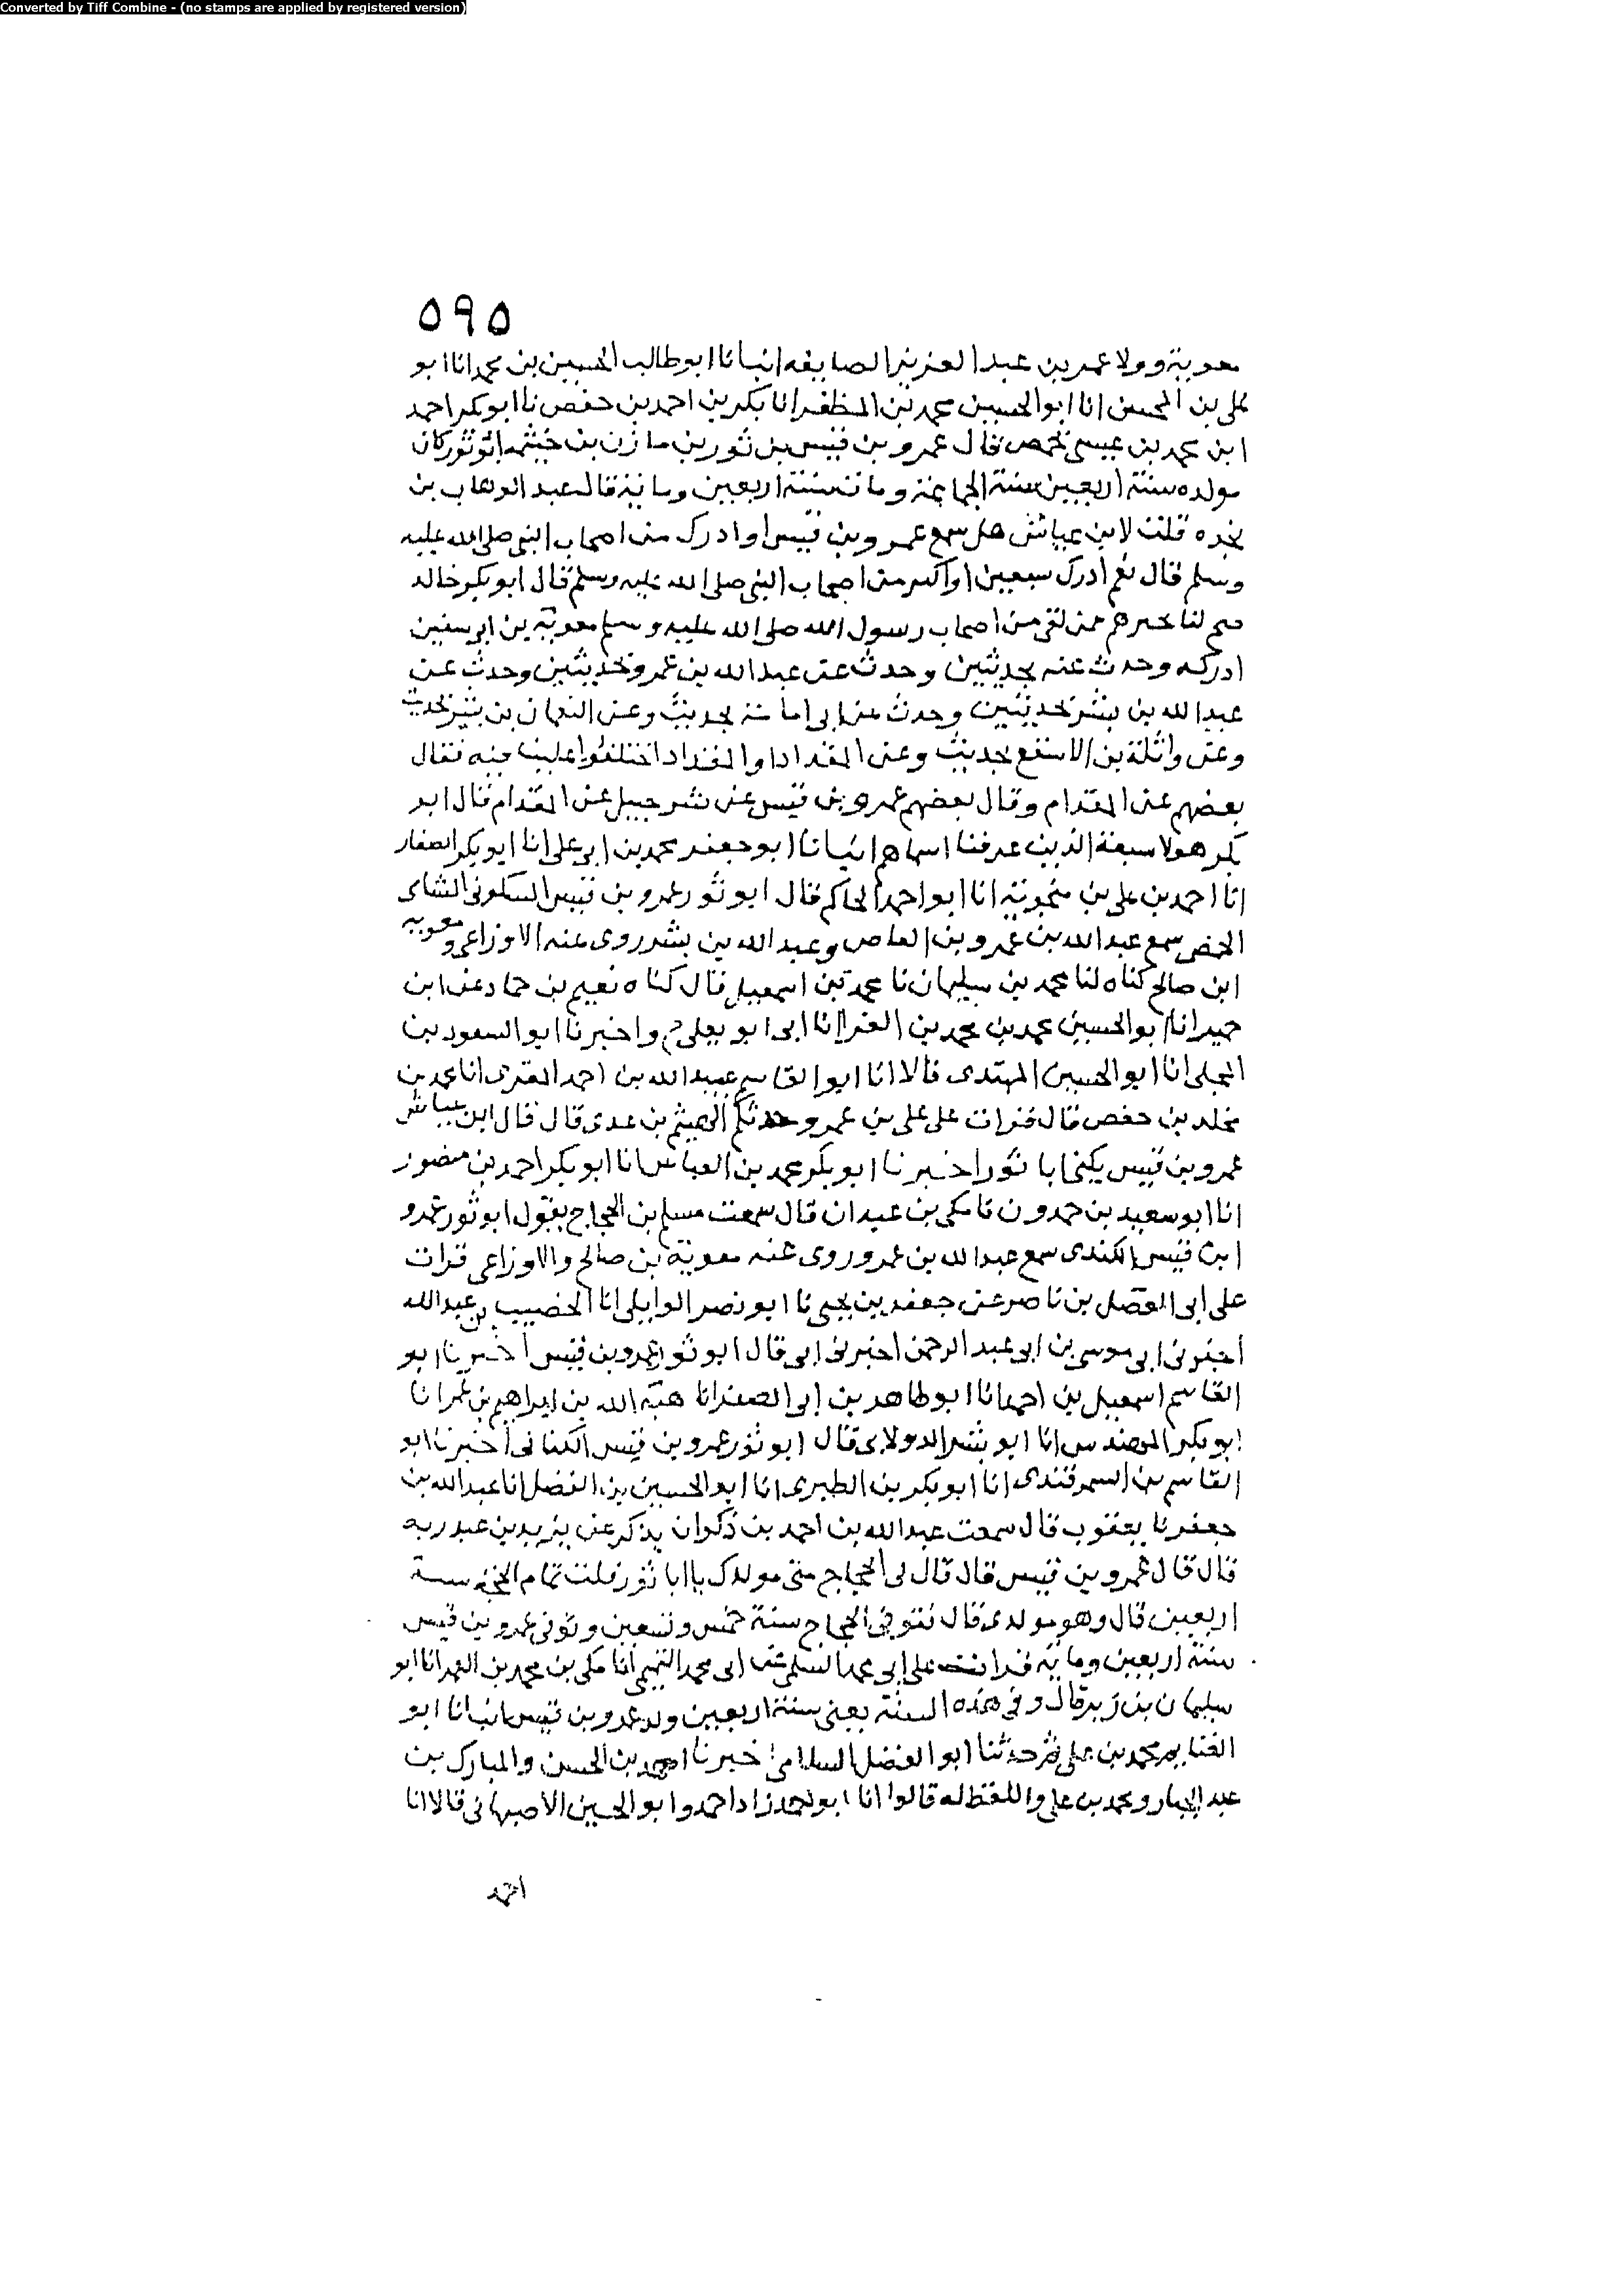 Converted by Tiff Combine - (no stamps are applied by registered version)
٥٩٥
معوية وولا عمر بن عبد العزيز الصايفه انبانا ابو طالب الحسين بن محمد انا ابو
علي بن المحسن انا ابو الحسين محمد بن المظفر انا بكر بن احمد بن حفص نا ابو بكر احمد
ابن محمد بن عيسى بحمص قال عمرو بن قيس بن ثور بن مازن بن خيثمه ابو ثور كان
مولده سنة اربعين سنة الجماعة ومات سنة اربعين وماية قال عبد الوهاب بن
نجده قلت لابن عياش هل سمع عمرو بن قيس او ادرك من اصحاب النبي صلى الله عليه
وسلم قال نعم ادرك سبعين او اكثر من اصحاب النبي صلى الله عليه وسلم قال ابو بكر خالد
صح لنا خبرهم ممن لقي من اصحاب رسول الله صلى الله عليه وسلم معوية بن ابي سفين
ادركه وحدث عنه بحديثين وحدث عن عبد الله بن عمرو بحديثين وحدث عن
عبد الله بن بشر بحديثين وحدث عن ابي امامة بحديث وعن النعمان بن بشير بحديث
وعن واثلة بن الاسقع بحديث وعن المقدام او المقداد اختلفوا علينا فيه فقال
بعضهم عن المقدام وقال بعضهم عمرو بن قيس عن شرحبيل عن المقدام قال ابو
بكر هولا سبعة الذين عرفنا اسماهم انبانا ابو جعفر محمد بن ابي علي انا ابو بكر الصفار
انا احمد بن علي بن منجوية انا ابو احمد الحاكم قال ابو ثور عمرو بن قيس السكوني الشامي
الحمصي سمع عبد الله بن عمرو بن العاص وعبد الله بن بشر روى عنه الاوزاعي ومعويه
ابن صالح كناه لنا محمد بن سليمان نا محمد بن اسمعيل قال كناه نعيم بن حماد عن ابن
حمير انا ابو الحسين محمد بن محمد بن الفرا انا ابي ابو يعلى ح واخبرنا ابو السعود بن
المجلي انا ابو الحسين المهتدى قالا انا ابو القاسم عبيد الله بن احمد المقرى انا محمد بن
مخلد بن حفص قال قرات على علي بن عمرو حدثكم الهيثم بن عدى قال قال ابن عياش
عمرو بن قيس يكنى ابا ثور اخبرنا ابو بكر محمد بن العباس انا ابو بكر احمد بن منصور
انا ابو سعيد بن حمدون نا مكي بن عبدان قال سمعت مسلم بن الحجاج يقول ابو ثور عمرو
ابن قيس الكندى سمع عبد الله بن عمرو روى عنه معوية بن صالح والاوزاعي قرات
على ابي الفضل بن ناصر عن جعفر بن يحيى نا ابو نصر الوايلي انا الخصيب بن عبد الله
اخبرني ابي موسى بن ابي عبد الرحمن اخبرني ابي قال ابو ثور عمرو بن قيس اخبرنا ابو
القاسم اسمعيل بن احمد انا ابو طاهر بن ابي الصقر انا هبة الله بن ابراهيم بن عمر انا
ابو بكر المهندس انا ابو بشر الدولابى قال ابو ثور عمرو بن قيس الكناني اخبرنا ابو
القاسم بن السمرقندى انا ابو بكر بن الطبرى انا ابو الحسين بن الفضل انا عبد الله بن
جعفر نا يعقوب قال سمعت عبد الله بن احمد بن ذكوان يذكر عن يزيد بن عبد ربه
قال قال عمرو بن قيس قال قال لي الحجاج متى مولدك يا ابا ثور قلت تمام الجماعة سنة
اربعين قال وهو مولدى قال فتوفي الحجاج سنة خمس وتسعين وتوفي عمرو بن قيس
سنة اربعين وماية قرات على ابي محمد السلمي عن ابي محمد التميمي انا مكي بن محمد بن الغمر انا ابو
سليمان بن زبر قال وفي هذه السنة يعني سنة اربعين ولد عمرو بن قيس انبانا ابو
الغنايم محمد بن علي ثم حدثنا ابو الفضل السلامى اخبرنا احمد بن الحسن والمبارك بن
عبد الجبار ومحمد بن علي واللفظ له قالوا انا ابو احمد زاد احمد وابو الحسين الاصبهاني قالا انا
احمد